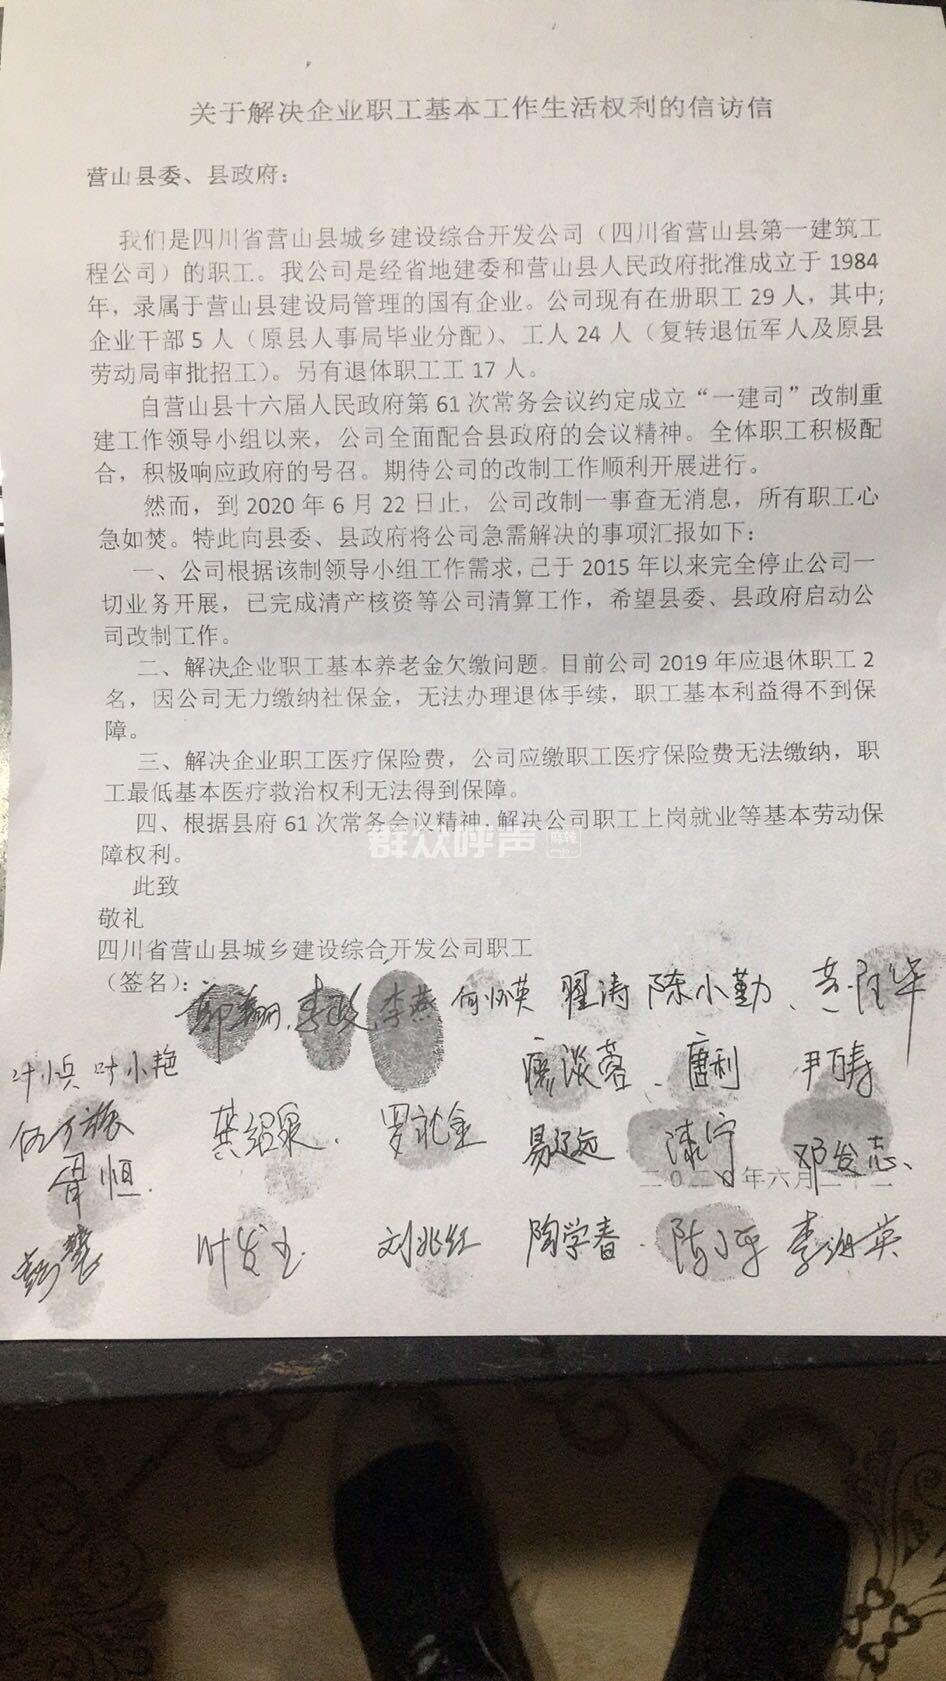 关于解决企业职工基本工作生活权利的信访信
营山县委、县政府：
我们是四川省营山县城乡建设综合开发公司（四川省营山县第一建筑工
程公司）的职工。我公司是经省地建委和营山县人民政府批准成立于 1984
年，录属于营山县建设局管理的国有企业。公司现有在册职工 29 人，其中;
企业干部 5 人（原县人事局毕业分配）、工人 24 人（复转退伍军人及原县
劳动局审批招工）。另有退体职工工 17 人。
自营山县十六届人民政府第 61 次常务会议约定成立“一建司”改制重
建工作领导小组以来，公司全面配合县政府的会议精神。全体职工积极配
合，积极响应政府的号召。期待公司的改制工作顺利开展进行。
然而，到 2020 年 6 月 22 日止，公司改制一事查无消息，所有职工心
急如焚。特此向县委、县政府将公司急需解决的事项汇报如下：
一、公司根据该制领导小组工作需求，己于 2015 年以来完全停止公司一
切业务开展，已完成清产核资等公司清算工作，希望县委、县政府启动公
司改制工作。
二、解决企业职工基本养老金欠缴问题。目前公司 2019 年应退休职工 2
名，因公司无力缴纳社保金，无法办理退体手续，职工基本利益得不到保
障。
三、解决企业职工医疗保险费，公司应缴职工医疗保险费无法缴纳，职
工最低基本医疗救治权利无法得到保障。
四、根据县府 61 次常务会议精神，解决公司职工上岗就业等基本劳动保
障权利。
群众呼声
此致
敬礼
四川省营山县城乡建设综合开发公司职工
（签名）：
李燕 何怀英 翟涛 陈小勤、
叶小艳 廖淡蓉、唐利 尹百寿
龚绍泉. 罗礼金 易辽远 漆宁 邓发志、
胥恒.
二〇二〇年六月二十二
叶发玉 刘兆红 陶学春. 陈小平 李海英